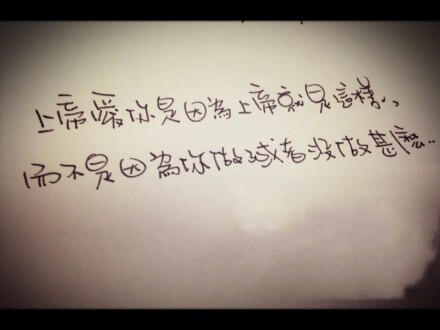 上帝愛你是因為上帝就是這樣..
而不是因為你做或者沒做甚麼..